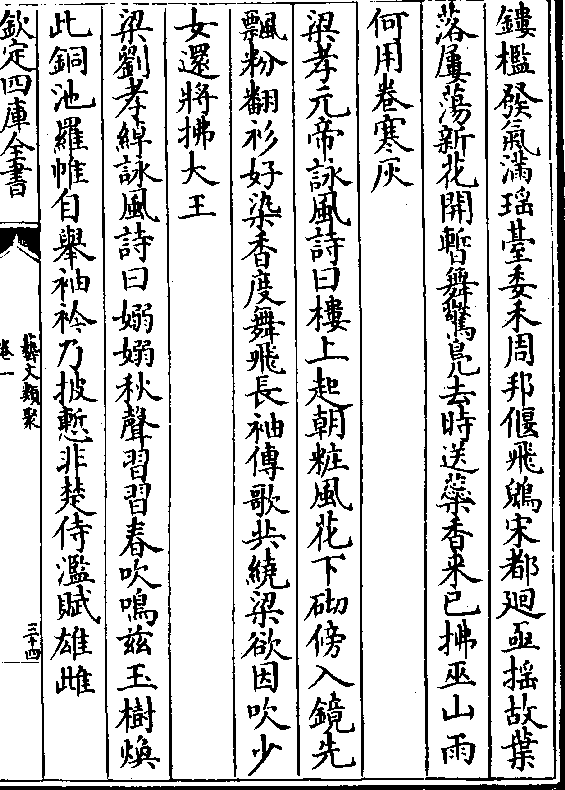 鏤檻發氣滿瑶䑓委禾周邦偃飛鷁宋都廻亟摇故葉
落屢蕩新花開暫舞驚鳧去時送蘂香来已拂巫山雨
何用卷寒灰
梁孝元帝詠風詩曰樓上起朝粧風花下砌傍入鏡先
飄粉翻衫好染香度舞飛長袖傳歌共繞梁欲因吹少
女還將拂大王
梁劉孝綽詠風詩曰嫋嫋秋聲習習春吹鳴兹玉樹煥
此銅池羅帷自舉袖衿乃披慙非楚侍濫賦雄雌
欽定四庫全書
藝文類聚
卷一
三十四